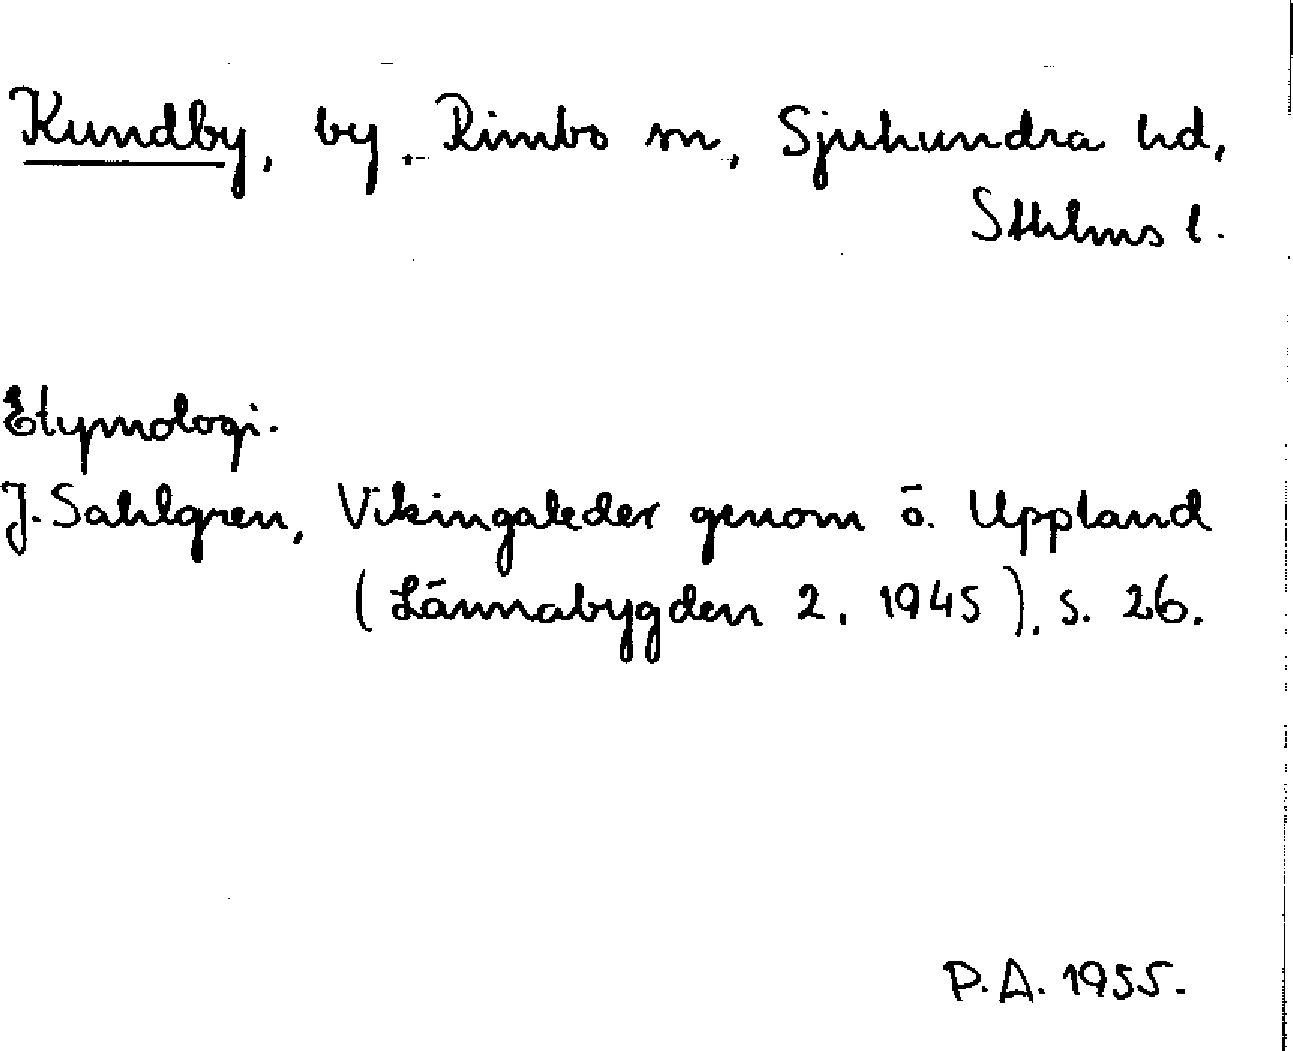 Kundby, by, Rimbo sn, Sjuhundra hd,
Sthlms l.
Etymologi.
J. Sahlgren, Vikingaleder genom ö. Uppland
(Lännabygden 2, 1945), s. 26.
P.A. 1955.